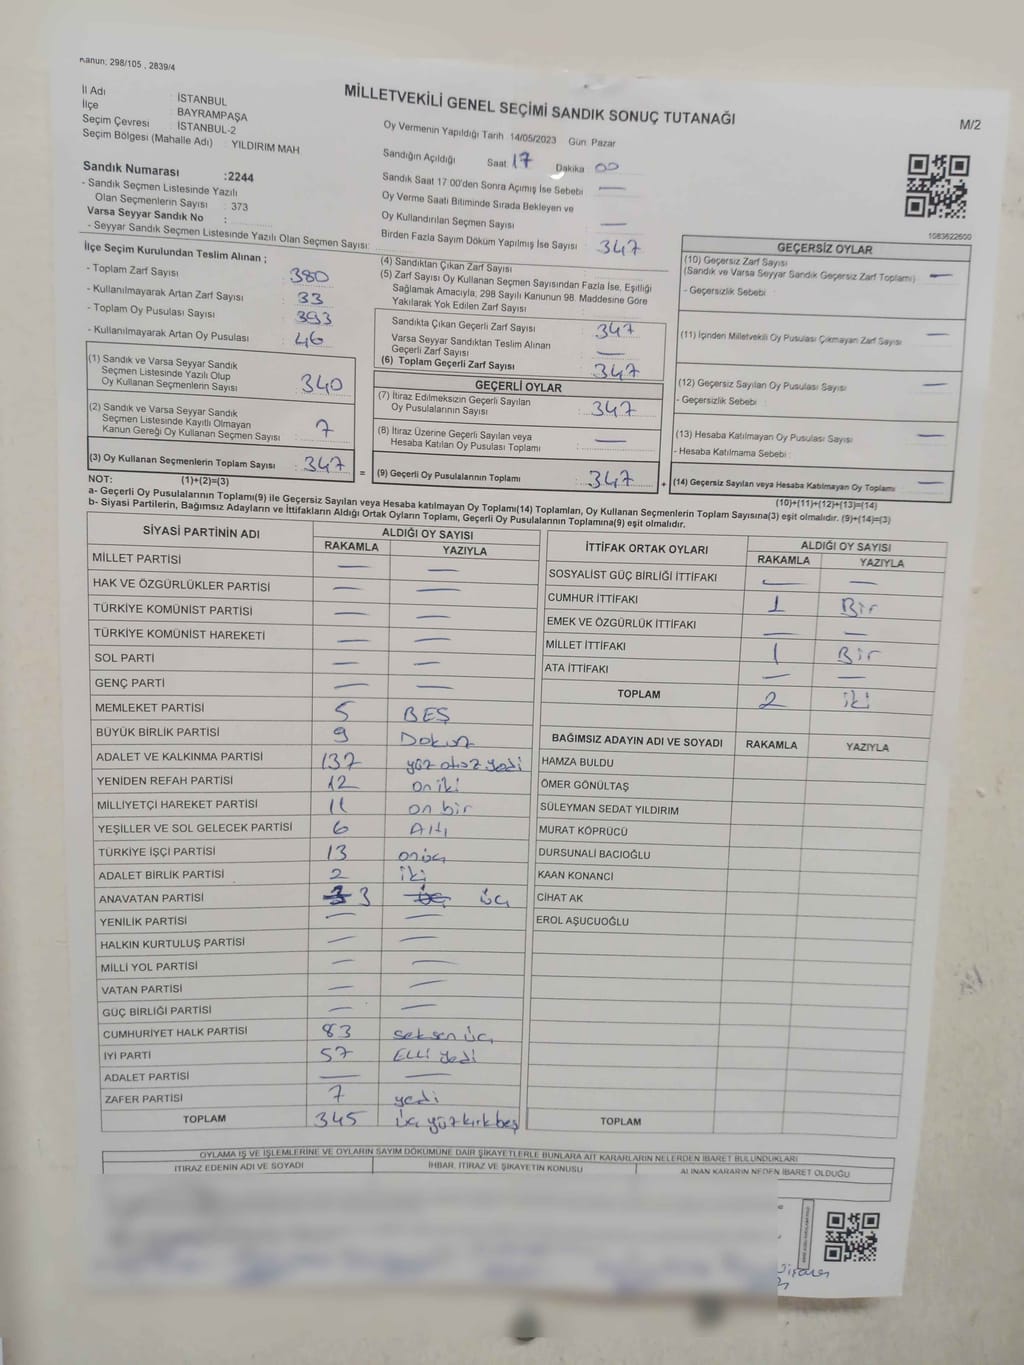 Kanun, 298/105 , 2839/4
MİLLETVEKİLİ GENEL SEÇİMİ SANDIK SONUÇ TUTANAĞI
M/2
İl Adı İSTANBUL
İlçe BAYRAMPAŞA
Seçim Çevresi : İSTANBUL-2
Seçim Bölgesi (Mahalle Adı) : YILDIRIM MAH
Sandık Numarası :2244
- Sandık Seçmen Listesinde Yazılı
Olan Seçmenlerin Sayısı : 373
Varsa Seyyar Sandık No :
- Seyyar Sandık Seçmen Listesinde Yazılı Olan Seçmen Sayısı:
Oy Vermenin Yapıldığı Tarih 14/05/2023 Gün Pazar
Sandığın Açıldığı Saat 17 Dakika 00
Sandık Saat 17:00'den Sonra Açımış İse Sebebi —
Oy Verme Saati Bitiminde Sırada Bekleyen ve
Oy Kullandırılan Seçmen Sayısı —
Birden Fazla Sayım Döküm Yapılmış İse Sayısı 347
1083622600
İlçe Seçim Kurulundan Teslim Alınan ;
- Toplam Zarf Sayısı : 380
- Kullanılmayarak Artan Zarf Sayısı : 33
- Toplam Oy Pusulası Sayısı : 393
- Kullanılmayarak Artan Oy Pusulası : 46
(1) Sandık ve Varsa Seyyar Sandık
Seçmen Listesinde Yazılı Olup
Oy Kullanan Seçmenlerin Sayısı : 340
(2) Sandık ve Varsa Seyyar Sandık
Seçmen Listesinde Kayıtlı Olmayan
Kanun Gereği Oy Kullanan Seçmen Sayısı : 7
(3) Oy Kullanan Seçmenlerin Toplam Sayısı : 347 =
(4) Sandıktan Çıkan Zarf Sayısı
(5) Zarf Sayısı Oy Kullanan Seçmen Sayısından Fazla İse, Eşitliği
Sağlamak Amacıyla, 298 Sayılı Kanunun 98. Maddesine Göre
Yakılarak Yok Edilen Zarf Sayısı :
Sandıkta Çıkan Geçerli Zarf Sayısı : 347
Varsa Seyyar Sandıktan Teslim Alınan
Geçerli Zarf Sayısı : —
(6) Toplam Geçerli Zarf Sayısı : 347
GEÇERLİ OYLAR
(7) İtiraz Edilmeksizin Geçerli Sayılan
Oy Pusulalarının Sayısı : 347
(8) İtiraz Üzerine Geçerli Sayılan veya
Hesaba Katılan Oy Pusulası Toplamı : —
(9) Geçerli Oy Pusulalarının Toplamı : 347 +
GEÇERSİZ OYLAR
(10) Geçersiz Zarf Sayısı
(Sandık ve Varsa Seyyar Sandık Geçersiz Zarf Toplamı) —
- Geçersizlik Sebebi :
(11) İçinden Milletvekili Oy Pusulası Çıkmayan Zarf Sayısı —
(12) Geçersiz Sayılan Oy Pusulası Sayısı —
- Geçersizlik Sebebi :
(13) Hesaba Katılmayan Oy Pusulası Sayısı —
- Hesaba Katılmama Sebebi :
(14) Geçersiz Sayılan veya Hesaba Katılmayan Oy Toplamı —
NOT: (1)+(2)=(3)
(10)+(11)+(12)+(13)=(14)
a- Geçerli Oy Pusulalarının Toplamı(9) ile Geçersiz Sayılan veya Hesaba katılmayan Oy Toplamı(14) Toplamları, Oy Kullanan Seçmenlerin Toplam Sayısına(3) eşit olmalıdır. (9)+(14)=(3)
b- Siyasi Partilerin, Bağımsız Adayların ve İttifakların Aldığı Ortak Oyların Toplamı, Geçerli Oy Pusulalarının Toplamına(9) eşit olmalıdır.
SİYASİ PARTİNİN ADI ALDIĞI OY SAYISI
RAKAMLA YAZIYLA
MİLLET PARTİSİ — —
HAK VE ÖZGÜRLÜKLER PARTİSİ — —
TÜRKİYE KOMÜNİST PARTİSİ — —
TÜRKİYE KOMÜNİST HAREKETİ — —
SOL PARTİ — —
GENÇ PARTİ — —
MEMLEKET PARTİSİ 5 BEŞ
BÜYÜK BİRLİK PARTİSİ 9 Dokuz
ADALET VE KALKINMA PARTİSİ 137 yüz otuz yedi
YENİDEN REFAH PARTİSİ 12 on iki
MİLLİYETÇİ HAREKET PARTİSİ 11 on bir
YEŞİLLER VE SOL GELECEK PARTİSİ 6 Altı
TÜRKİYE İŞÇİ PARTİSİ 13 onüç
ADALET BİRLİK PARTİSİ 2 iki
ANAVATAN PARTİSİ 3 3 üç üç
YENİLİK PARTİSİ — —
HALKIN KURTULUŞ PARTİSİ — —
MİLLİ YOL PARTİSİ — —
VATAN PARTİSİ — —
GÜÇ BİRLİĞİ PARTİSİ — —
CUMHURİYET HALK PARTİSİ 83 seksen üç
İYİ PARTİ 57 Elli yedi
ADALET PARTİSİ — —
ZAFER PARTİSİ 7 yedi
TOPLAM 345 üç yüz kırk beş
İTTİFAK ORTAK OYLARI ALDIĞI OY SAYISI
RAKAMLA YAZIYLA
SOSYALİST GÜÇ BİRLİĞİ İTTİFAKI — —
CUMHUR İTTİFAKI 1 Bir
EMEK VE ÖZGÜRLÜK İTTİFAKI — —
MİLLET İTTİFAKI 1 Bir
ATA İTTİFAKI — —
TOPLAM 2 iki
BAĞIMSIZ ADAYIN ADI VE SOYADI RAKAMLA YAZIYLA
HAMZA BULDU
ÖMER GÖNÜLTAŞ
SÜLEYMAN SEDAT YILDIRIM
MURAT KÖPRÜCÜ
DURSUNALİ BACIOĞLU
KAAN KONANCİ
CİHAT AK
EROL AŞUCUOĞLU
TOPLAM
OYLAMA İŞ VE İŞLEMLERİNE VE OYLARIN SAYIM DÖKÜMÜNE DAİR ŞİKAYETLERLE BUNLARA AİT KARARLARIN NELERDEN İBARET BULUNDUKLARI
İTİRAZ EDENİN ADI VE SOYADI İHBAR, İTİRAZ VE ŞİKAYETİN KONUSU ALINAN KARARIN NEDEN İBARET OLDUĞU